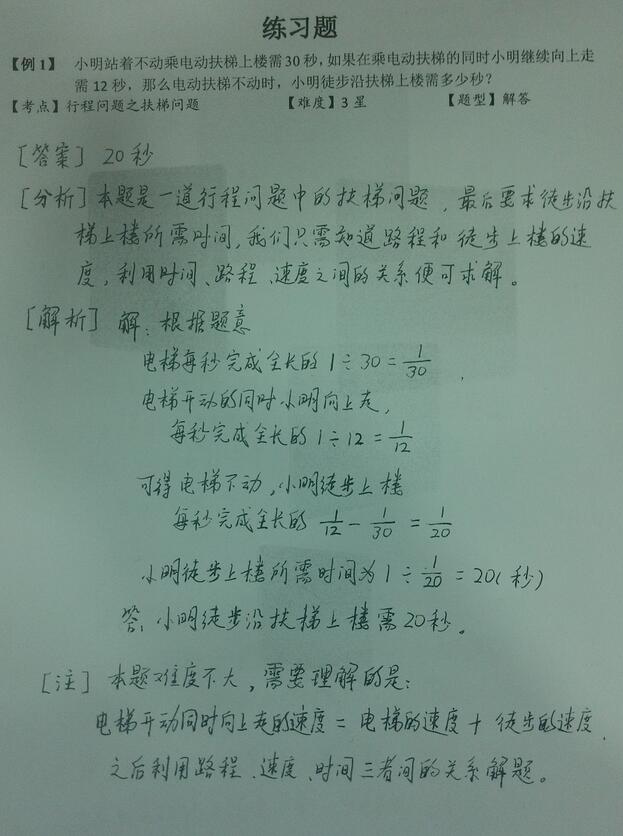 练习题
【例1】 小明站着不动乘电动扶梯上楼需30秒,如果在乘电动扶梯的同时小明继续向上走
需12秒,那么电动扶梯不动时,小明徒步沿扶梯上楼需多少秒?
【考点】行程问题之扶梯问题 【难度】3星 【题型】解答
[答案] 20秒
[分析] 本题是一道行程问题中的扶梯问题,最后要求徒步沿扶
梯上楼所需时间,我们只需知道路程和徒步上楼的速
度,利用时间、路程、速度之间的关系便可求解。
[解析] 解:根据题意
电梯每秒完成全长的 1÷30=1/30,
电梯开动的同时小明向上走,
每秒完成全长的 1÷12=1/12
可得电梯不动,小明徒步上楼
每秒完成全长的 1/12-1/30=1/20
小明徒步上楼所需时间为 1÷1/20=20(秒)
答:小明徒步沿扶梯上楼需20秒。
[注] 本题难度不大,需要理解的是:
电梯开动同时向上走的速度=电梯的速度+徒步的速度,
之后利用路程、速度、时间三者间的关系解题。